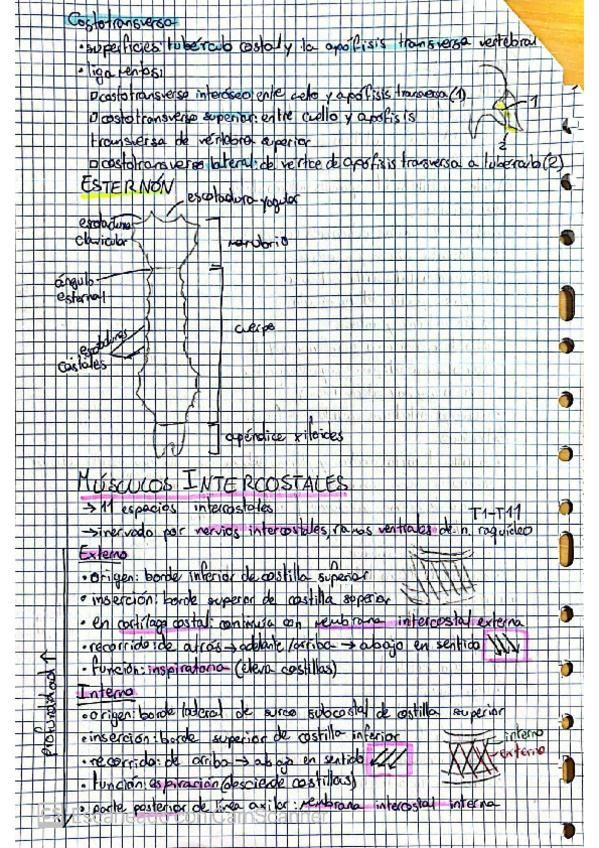 Costotransversa
• superficies: tubérculo costal y la apófisis transversa vertebral
• ligamentos:
▫ costotransverso interóseo: entre cuello y apófisis transversa (1)
▫ costotransverso superior: entre cuello y apófisis
transversa de vértebra superior
▫ costotransverso lateral: de vértice de apófisis transversa a tubérculo (2)
1
2
ESTERNÓN
escotadura yugular
escotadura
clavicular
manubrio
ángulo
esternal
cuerpo
escotaduras
costales
apéndice xifoides
MÚSCULOS INTERCOSTALES
→ 11 espacios intercostales
T1-T11
→ inervado por nervios intercostales, ramos ventrales de n. raquídeo
Externo
• origen: borde inferior de costilla superior
• inserción: borde superor de costilla soperior
• en cartílago costal: continúa con membrana intercostal externa
• recorrido: de atrás → adelante / arriba → abajo en sentido
• función: inspiratoria (eleva costillas)
profundidad ↑
Interno
• origen: borde lateral de surco subcostal de costilla superior
• inserción: borde superior de costilla inferior
interno
externo
• recorrido: de arriba → abajo en sentido
• función: espiración (desciende costillas)
• parte posterior de línea axilar: membrana intercostal interna
CS Escaneado con CamScanner